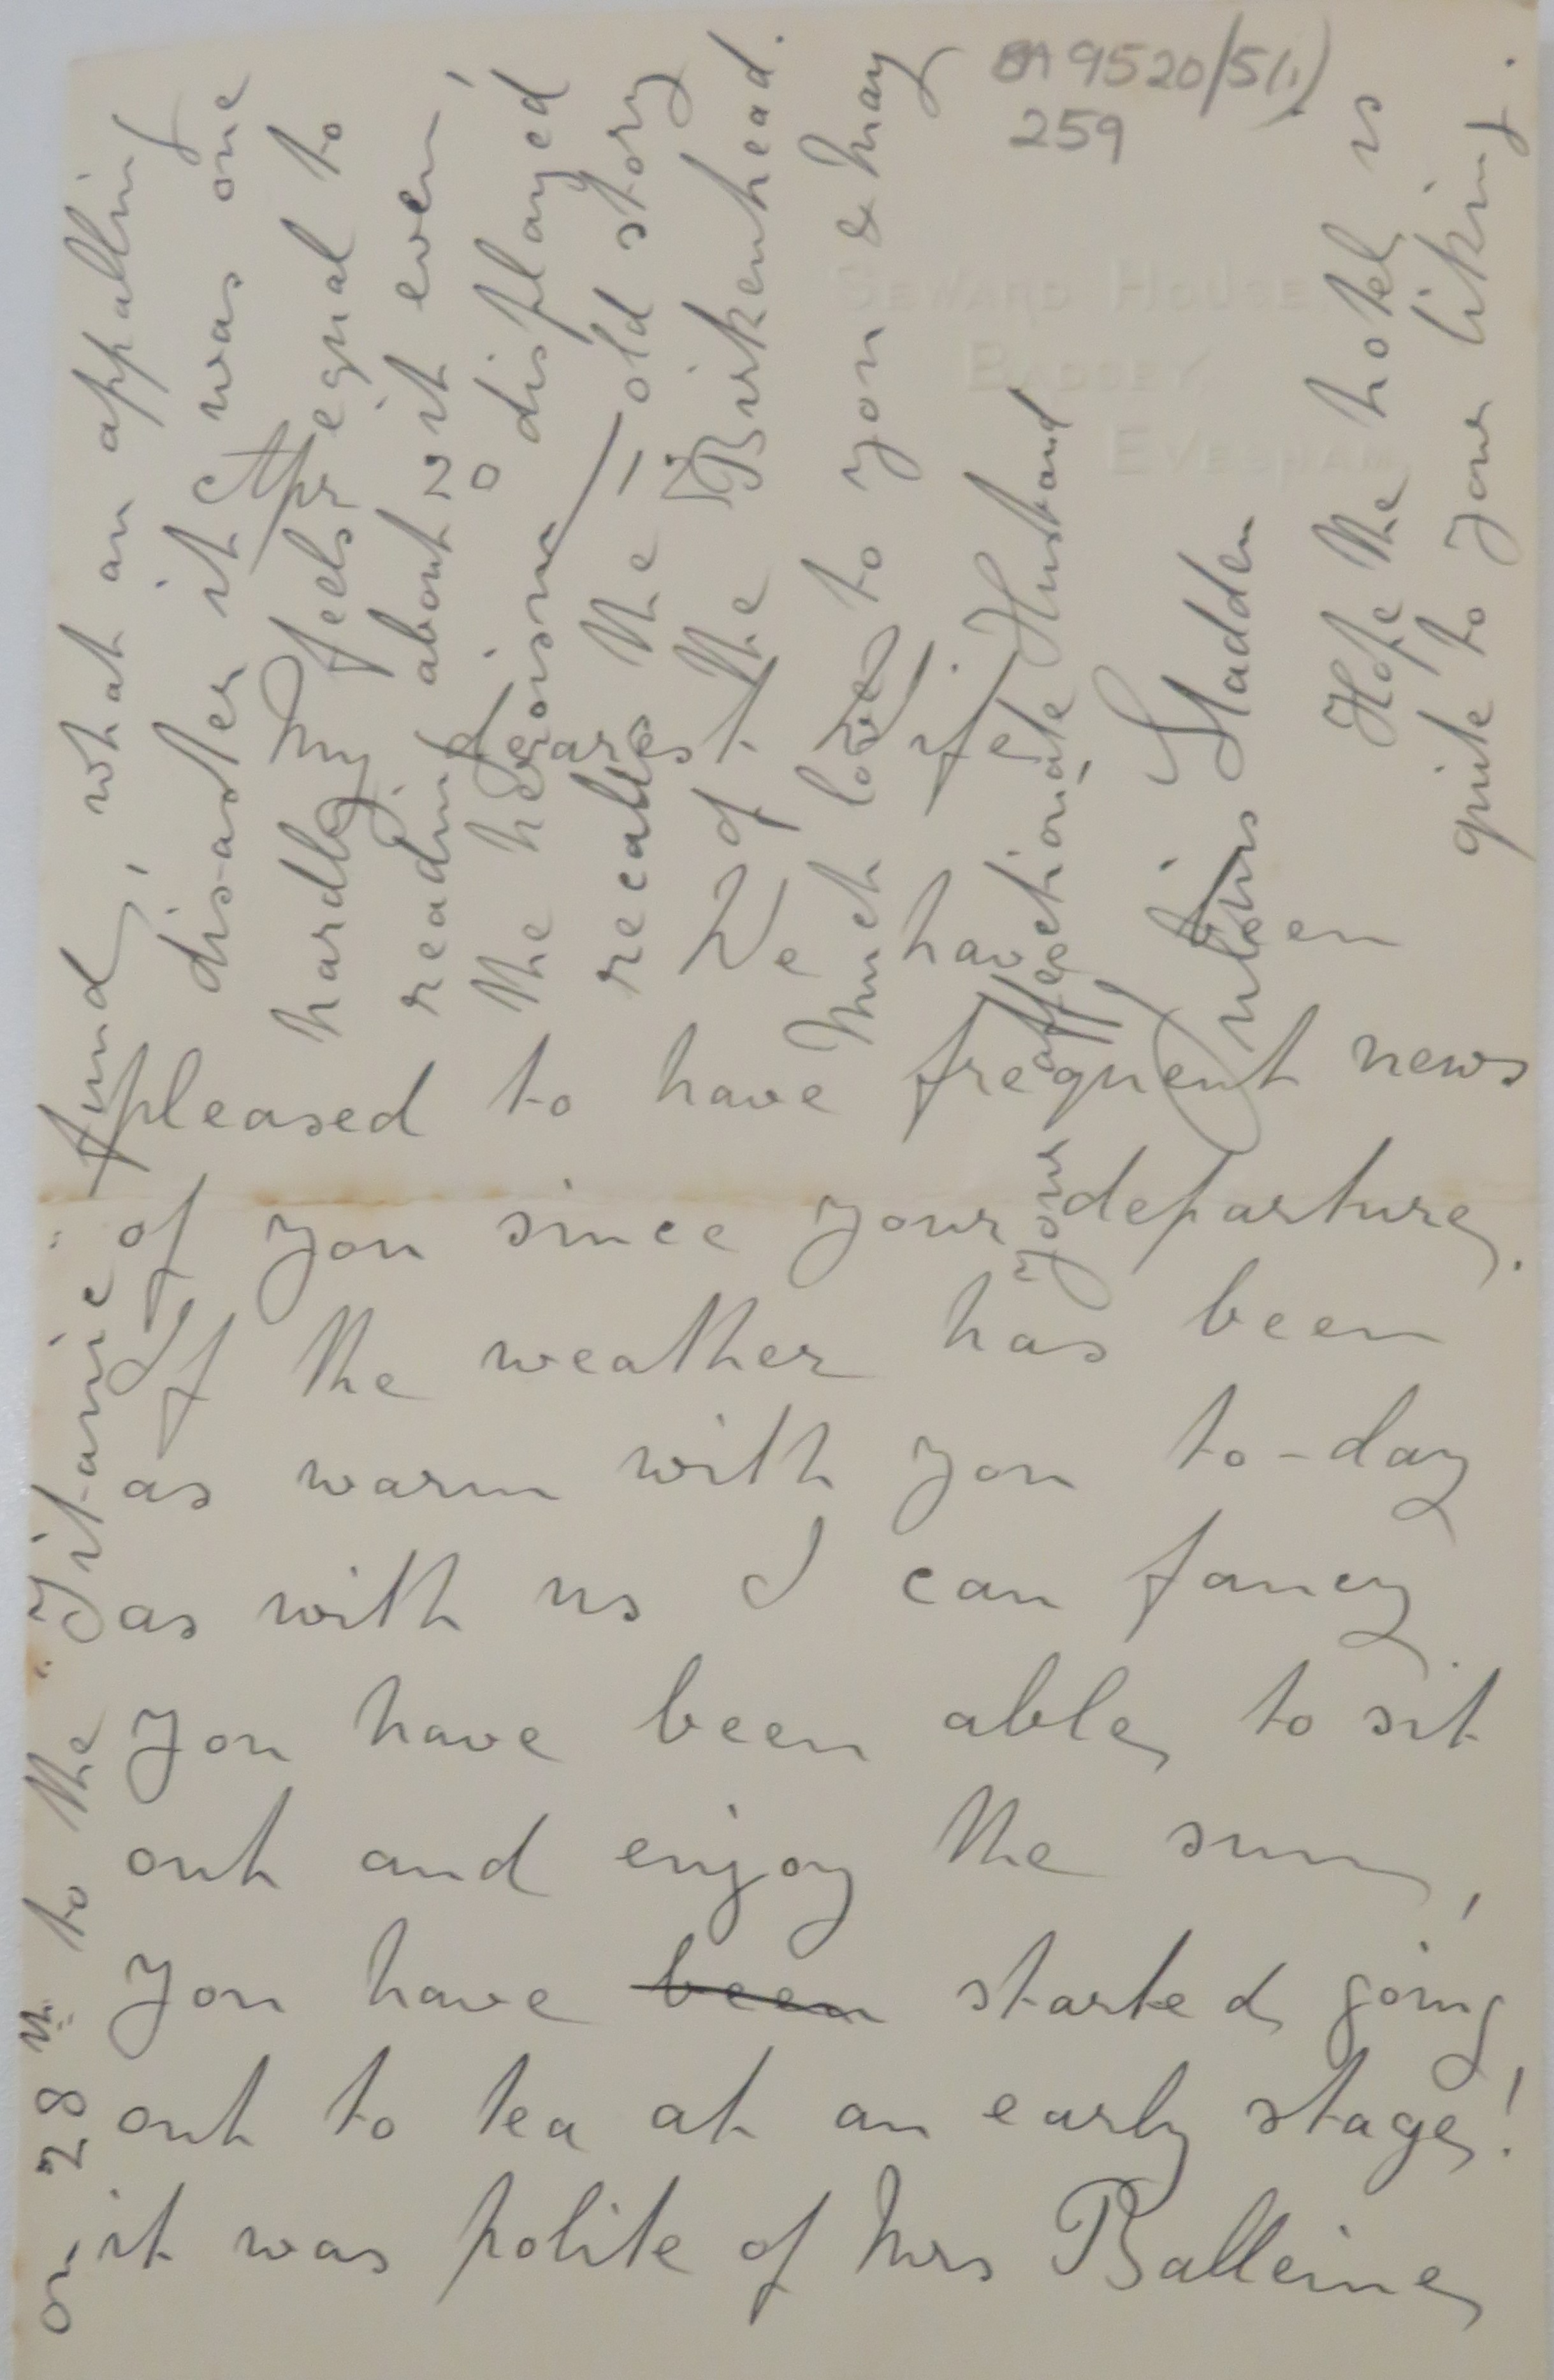 BA 9520/5(1)
259
SEWARD HOUSE,
BADSEY,
EVESHAM.
Apr 20
My dearest Wife,
We have been
pleased to have frequent news
of you since your departure.
If the weather has been
as warm with you to-day
as with us I can fancy
you have been able to sit
out and enjoy the sun,
you have been started going
out to tea at an early stage!
it was polite of Mrs Balleine
on 28th to the "Titanic" fund, what an appalling
disaster it was one
hardly feels equal to
reading about it even,
the heroism displayed
recalls the old story
of the Birkenhead.
Much love to you & Mary
your affectionate Husband
Julius Sladden
Hope the hotel is
quite to your liking.